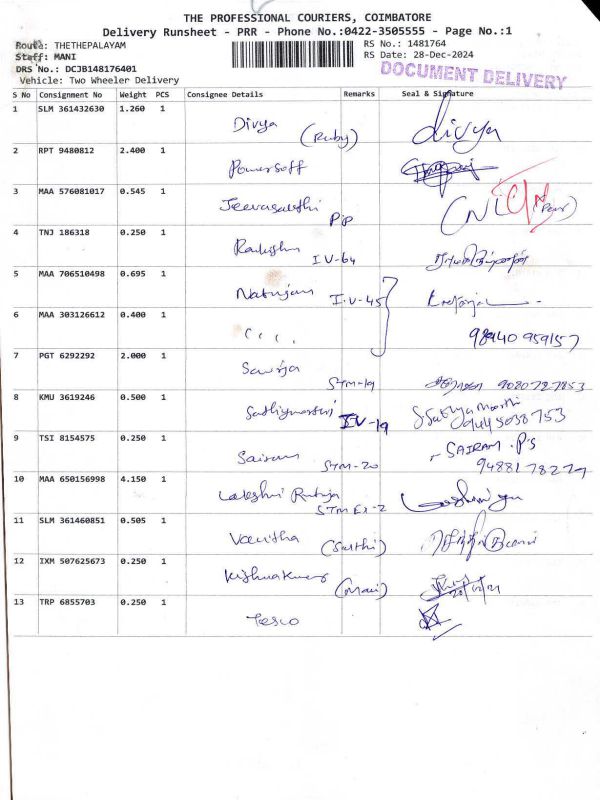 THE PROFESSIONAL COURIERS, COIMBATORE
Delivery Runsheet - PRR - Phone No.:0422-3505555 - Page No.:1
Route: THETHEPALAYAM RS No.: 1481764
Staff: MANI RS Date: 28-Dec-2024
DRS No.: DCJB148176401 DOCUMENT DELIVERY
Vehicle: Two Wheeler Delivery
S No Consignment No Weight PCS Consignee Details Remarks Seal & Signature
1 SLM 361432630 1.260 1 Divya (Ruby) divya
2 RPT 9480812 2.400 1 Powersoff
3 MAA 576081017 0.545 1 Jeevasakthi PIP
4 TNJ 186318 0.250 1 IV-64
5 MAA 706510498 0.695 1 Natrajan I.V-45
6 MAA 303126612 0.400 1 98940 959157
7 PGT 6292292 2.000 1 STM-19 9080727853
8 KMU 3619246 0.500 1 Sathiymoorthi IV-19 Sathya Moorthi 9445038753
9 TSI 8154575 0.250 1 Sairam STM-20 SAIRAM.P.S 9488178277
10 MAA 650156998 4.150 1 Lakshmi STM Ex-2
11 SLM 361460851 0.505 1 Vanitha (Sakthi)
12 IXM 507625673 0.250 1 (Mani)
13 TRP 6855703 0.250 1 Tesco